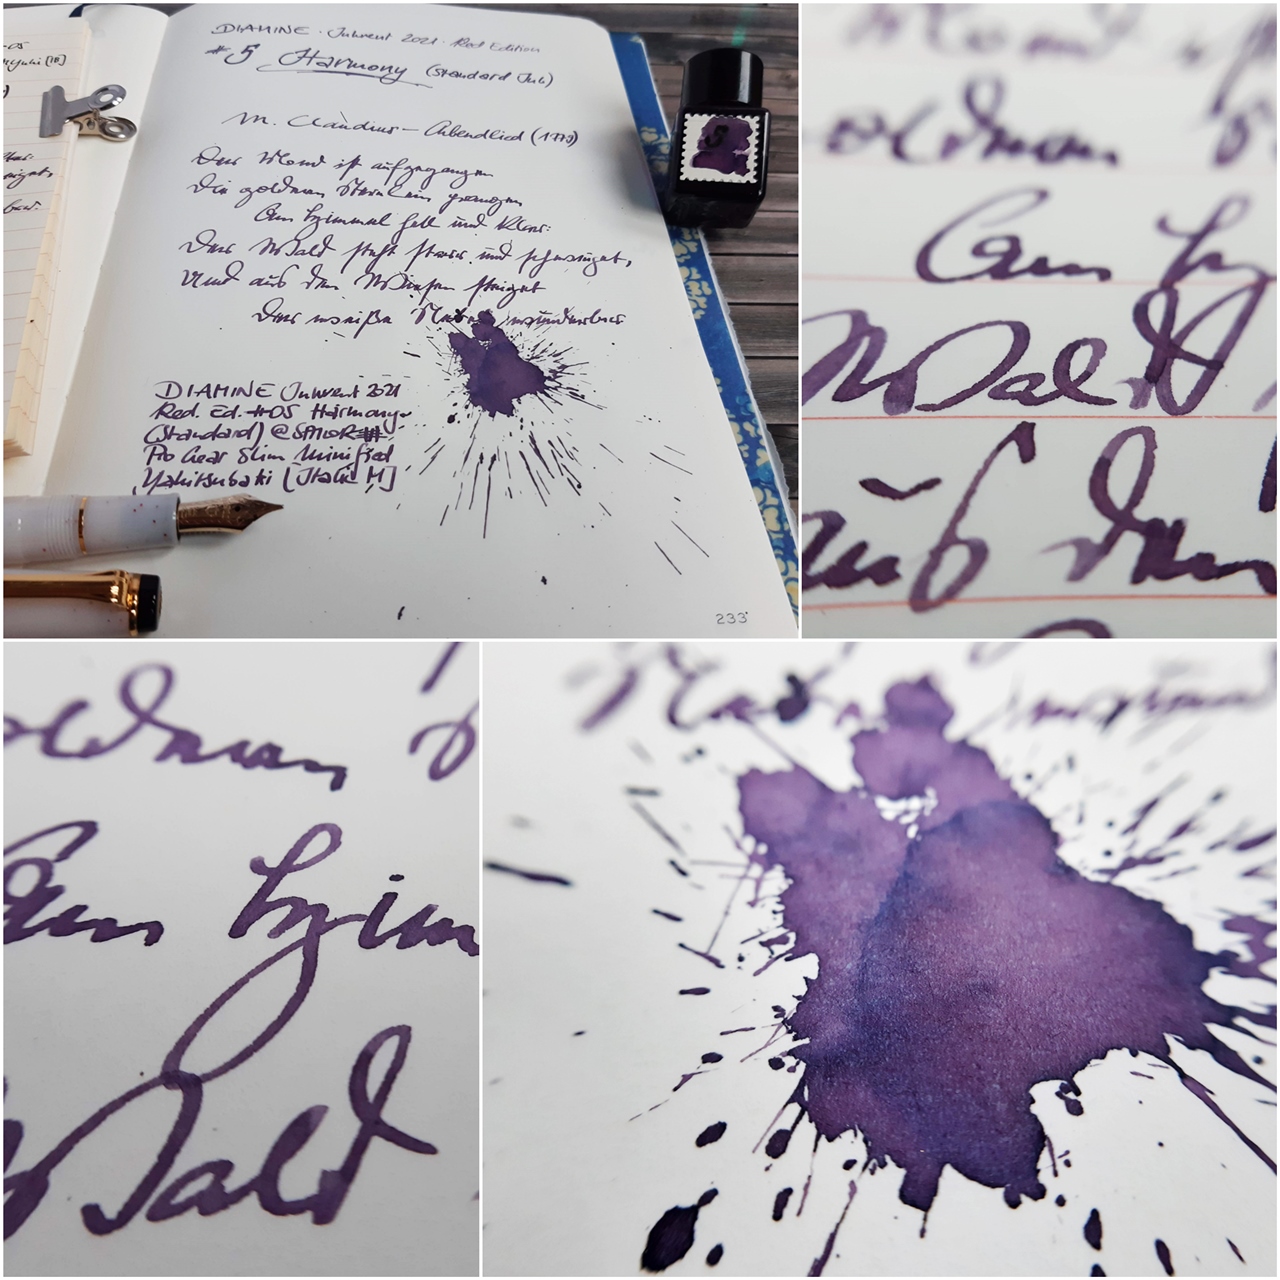 DIAMINE · Inkvent 2021 · Red Edition
#5 Harmony (Standard Ink)
M. Claudius – Abendlied (1779)
Der Mond ist aufgegangen
Die goldnen Sternlein prangen
Am Himmel hell und klar:
Der Wald steht schwarz und schweiget,
Und aus den Wiesen steiget
Der weiße Nebel wunderbar
DIAMINE Inkvent 2021
Red. Ed. #05 Harmony
(Standard) @ SAILOR
Pro Gear Slim Minified
Yakitsubaki [Italic M]
233
5
oldnen
Am Hi
Wald
aus den
oldnen
Am Him
Wald